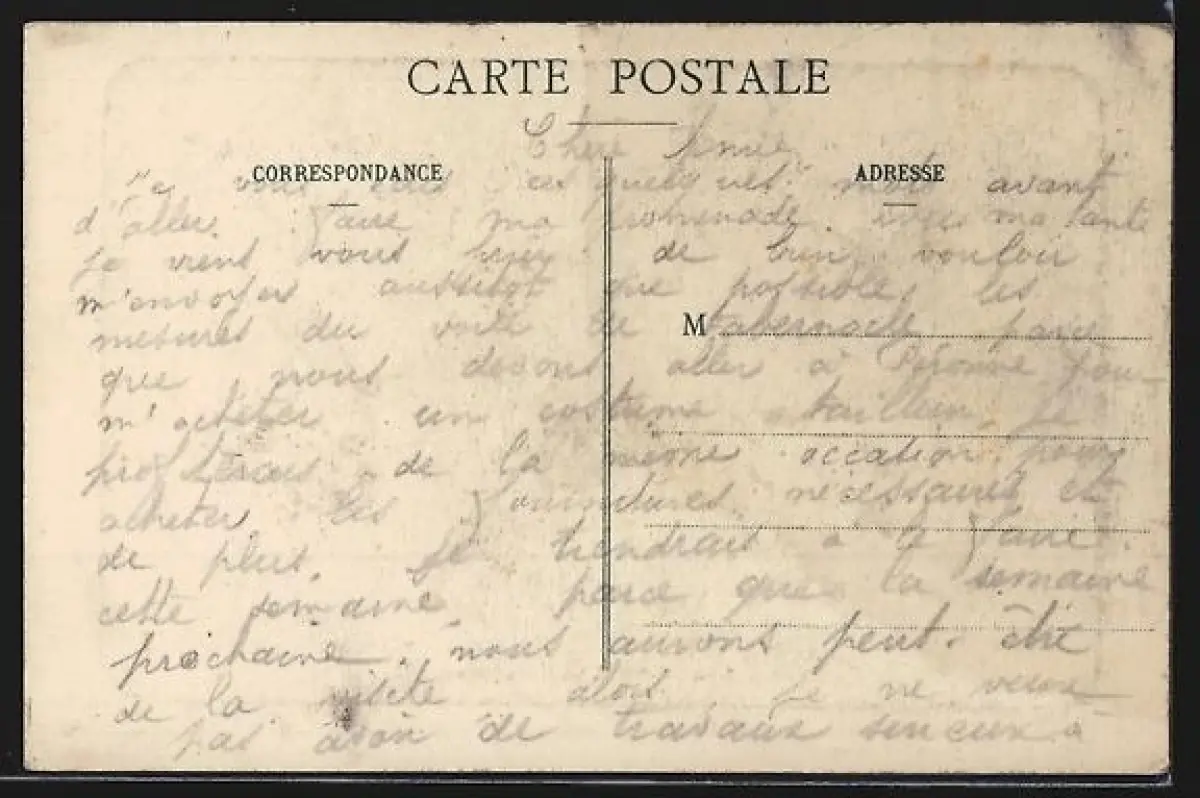 CARTE POSTALE
Chère Amie
CORRESPONDANCE
ADRESSE
vous ces quelques mots avant
d'aller faire ma promenade avec ma tante
je viens vous de bien vouloir
m'envoyer aussitot que possible, les
M
mesures du voile de tabernacle parce
que nous devons aller à Péronne pour
m'acheter un costume tailleur, je
profiterais de la même occation pour
acheter les fournitures nécessaires et
de plus, je tiendrais à le faire
cette semaine parce que la semaine
prochaine, nous aurons peut-être
de la visite alors je ne veux
pas avoir de travaux